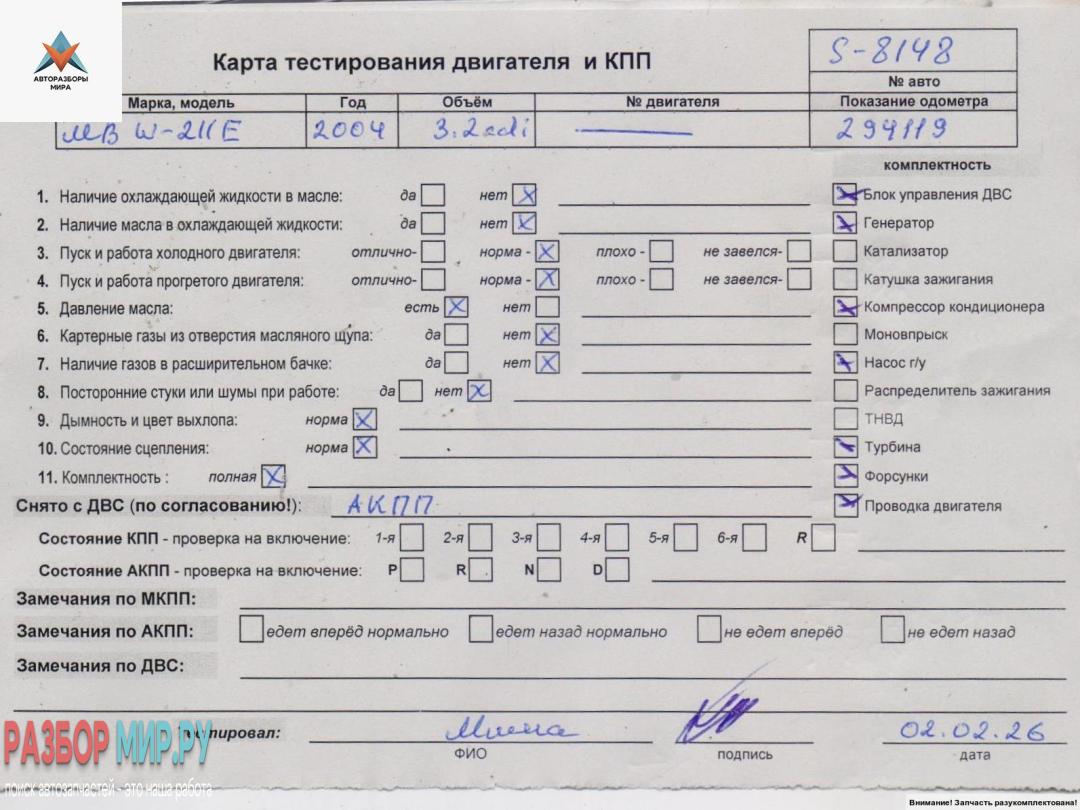 АВТОРАЗБОРЫ
МИРА
Карта тестирования двигателя и КПП
S-8148
№ авто
Марка, модель Год Объём № двигателя Показание одометра
МВ W-211E 2004 3.2cdi — 294119
комплектность
1. Наличие охлаждающей жидкости в масле: да нет X
Блок управления ДВС
2. Наличие масла в охлаждающей жидкости: да нет X
Генератор
3. Пуск и работа холодного двигателя: отлично- норма - X плохо - не завелся-
Катализатор
4. Пуск и работа прогретого двигателя: отлично- норма - X плохо - не завелся-
Катушка зажигания
5. Давление масла: есть X нет
Компрессор кондиционера
6. Картерные газы из отверстия масляного щупа: да нет X
Моновпрыск
7. Наличие газов в расширительном бачке: да нет X
Насос г/у
8. Посторонние стуки или шумы при работе: да нет X
Распределитель зажигания
9. Дымность и цвет выхлопа: норма X
ТНВД
10. Состояние сцепления: норма X
Турбина
11. Комплектность : полная X
Форсунки
Снято с ДВС (по согласованию!): АКПП
Проводка двигателя
Состояние КПП - проверка на включение: 1-я 2-я 3-я 4-я 5-я 6-я R
Состояние АКПП - проверка на включение: P R N D
Замечания по МКПП:
Замечания по АКПП: едет вперёд нормально едет назад нормально не едет вперёд не едет назад
Замечания по ДВС:
Тестировал: 02.02.26
ФИО подпись дата
РАЗБОР МИР.РУ
поиск автозапчастей - это наша работа
Внимание! Запчасть разукомплектована!